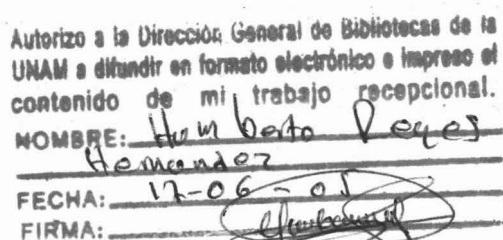 Autorizo a la Dirección General de Bibliotecas de la
UNAM a difundir en formato electrónico e impreso el
contenido de mi trabajo recepcional.
NOMBRE: Humberto Reyes
Hernandez
FECHA: 17-06-05
FIRMA: